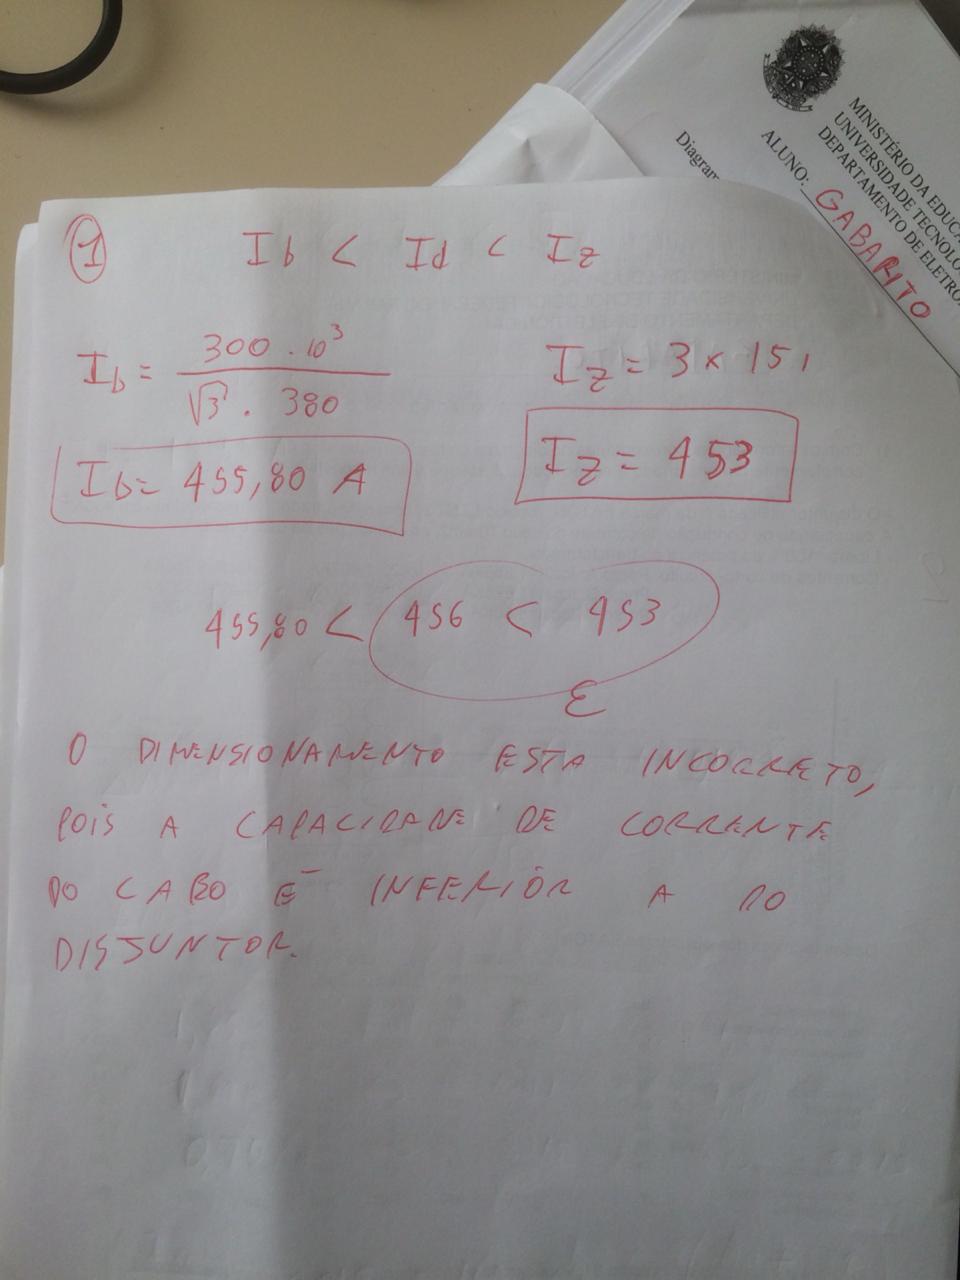 MINISTÉRIO DA EDUCA
UNIVERSIDADE TECNOLO
DEPARTAMENTO DE ELETRO
ALUNO: GABARITO
Diagram
1
Ib < Id < Iz
Ib = 300 . 10³ / √3 . 380
Iz = 3 x 151
Ib = 455,80 A
Iz = 453
455,80 < 456 < 453
E
O DIMENSIONAMENTO ESTA INCORRETO,
POIS A CAPACIDADE DE CORRENTE
DO CABO É INFERIOR A DO
DISJUNTOR.